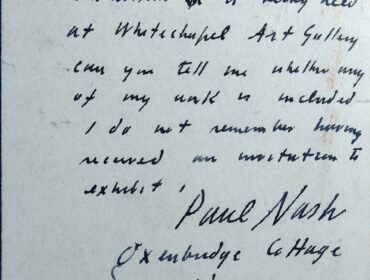 is being held
at Whitechapel Art Gallery
can you tell me whether any
of my work is included
I do not remember having
received an invitation to
exhibit!
Paul Nash
Oxenbridge Cottage